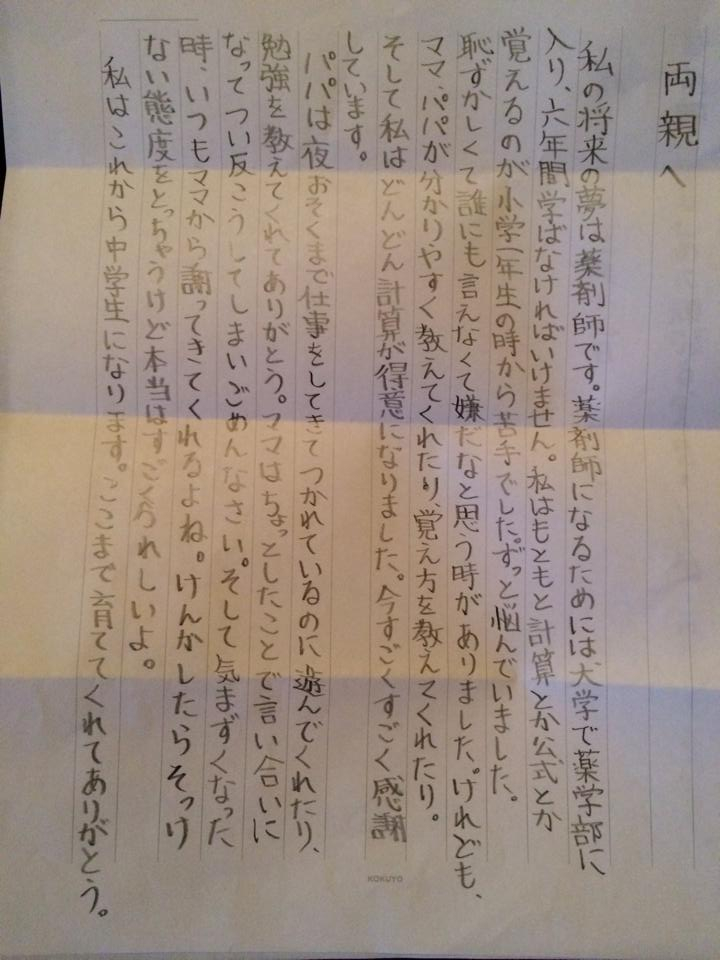 両親へ
私の将来の夢は薬剤師です。薬剤師になるためには大学で薬学部に
入り、六年間学ばなければいけません。私はもともと計算とか公式とか
覚えるのが小学一年生の時から苦手でした。ずっと悩んでいました。
恥ずかしくて誰にも言えなくて嫌だなと思う時がありました。けれども、
ママ、パパが分かりやすく教えてくれたり、覚え方を教えてくれたり。
そして私はどんどん計算が得意になりました。今すごくすごく感謝
しています。
パパは夜おそくまで仕事をしてきてつかれているのに遊んでくれたり、
勉強を教えてくれてありがとう。ママはちょっとしたことで言い合いに
なってつい反こうしてしまいごめんなさい。そして気まずくなった
時、いつもママから謝ってきてくれるよね。けんかしたらそっけ
ない態度をとっちゃうけど本当はすごくうれしいよ。
私はこれから中学生になります。ここまで育ててくれてありがとう。
KOKUYO